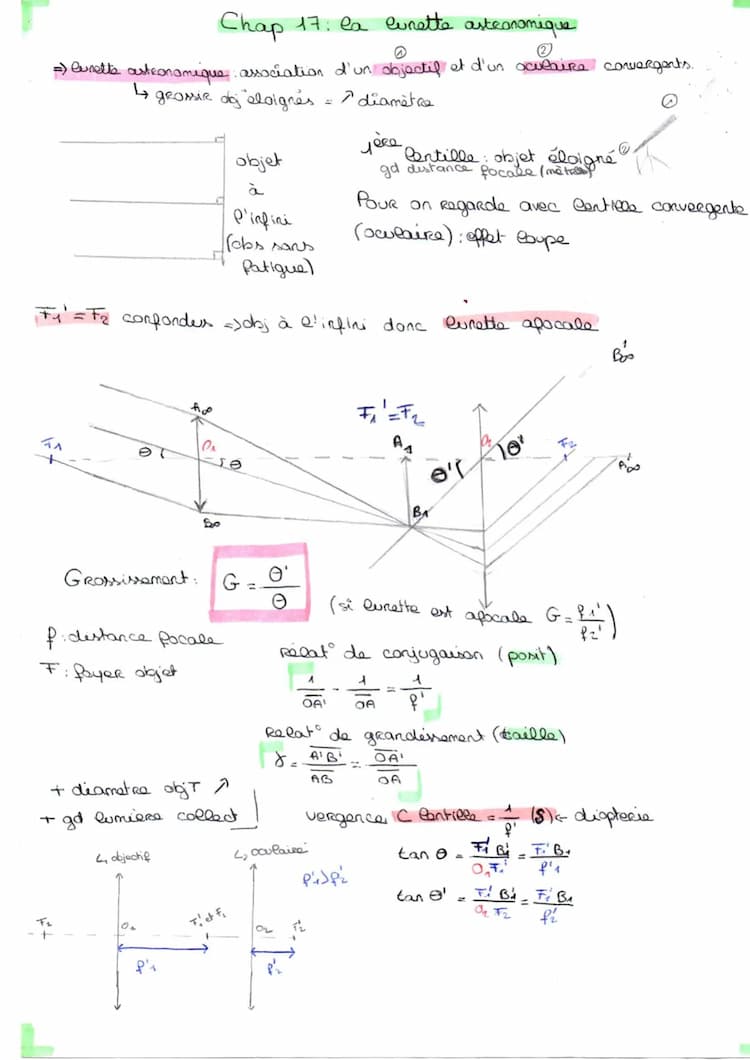 Chap 17: la lunette astronomique
① ②
=> lunette astronomique: association d'un objectif et d'un oculaire convergents.
↳ grossir obj éloignés = ↗ diamètre
①
objet
à
l'infini
(obs sans
fatigue)
1ère lentille: objet éloigné ②
gd distance focale (mètres)
Pour on regarde avec lentille convergente
(oculaire): effet loupe
F1' = F2 confondus => obj à l'infini donc lunette afocale
B'∞
A∞
F1' = F2
F1
θ
O1
θ
A1
θ'
O2
θ'
F2
A'∞
B1
B∞
Grossissement: G = θ'/θ
(si lunette est afocale G = f1'/f2')
f: distance focale
F: foyer objet
Relat° de conjugaison (posit)
1/OA' - 1/OA = 1/f'
Relat° de grandissement (taille)
γ = A'B'/AB = OA'/OA
+ diametre objT ↗
+ gd lumière collect
vergence C lentille = 1/f' (δ) ← dioptrie
tan θ = F1'B1/O1F1' = F1'B1/f'1
tan θ' = F1'B1/O2F2 = F1'B1/f2'
L1 objectif
L2 oculaire
f'1 > f'2
F2
O1
F1' et F2
O2
F2'
f'1
f'2